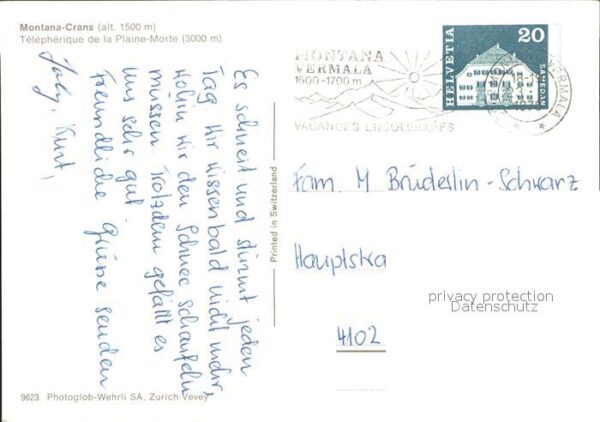 Montana-Crans (alt. 1500 m)
Téléphérique de la Plaine-Morte (3000 m)
Es schneit und stürmt jeden
Tag. Wir wissen bald nicht mehr,
wohin wir den Schnee schaufeln
müssen. Trotzdem gefällt es
uns sehr gut.
Freundliche Grüsse senden
Kurt,
9623 Photoglob-Wehrli SA, Zürich Vevey
Printed in Switzerland
MONTANA
VERMALA
1500-1700 m
VACANCES ENSOLEILLÉES
HELVETIA
20
SAMEDAN
VERMALA
Fam. M Brüderlin-Schwarz
Hauptstra
4102
privacy protection
Datenschutz